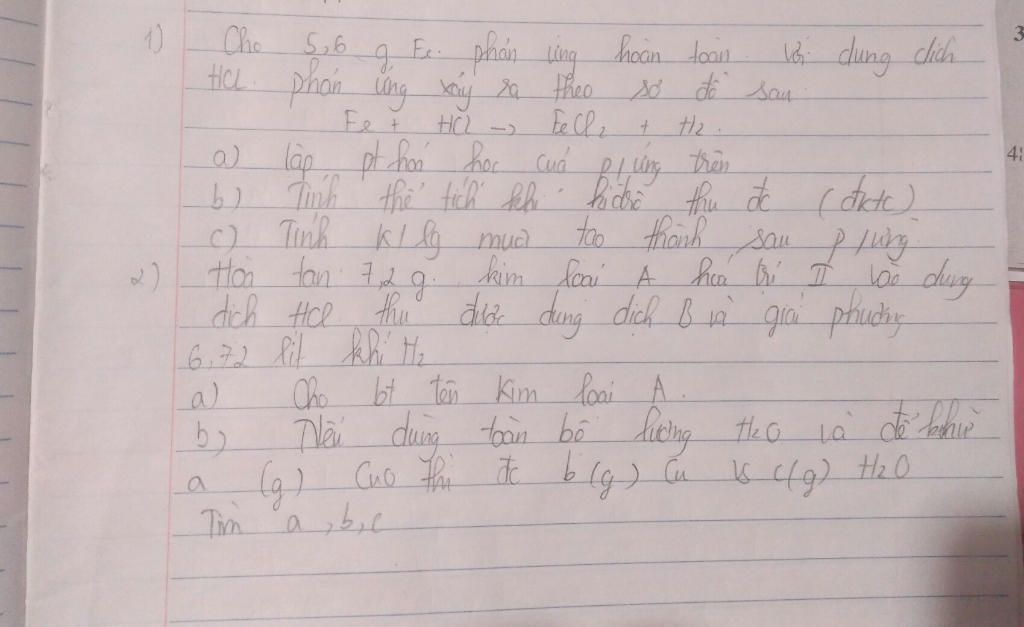 1) Cho 5,6 g Fe. phản ứng hoàn toàn. với dung dịch
HCl. phản ứng xảy ra theo sơ đồ sau
Fe + HCl → FeCl2 + H2.
a) lập pt hoá học của p/ứng trên
b) Tính thể tích khí hiđrô thu đc (đktc)
c) Tính k/lg muối tạo thành sau p/ứng
2) Hoà tan 7,2 g. kim loại A hoá trị II vào dung
dịch HCl thu được dung dịch B và giải phương
6,72 lít khí H2
a) Cho bt tên kim loại A.
b) Nếu dùng toàn bộ lượng H2O và để khử
a (g) CuO thì đc b(g) Cu vs c(g) H2O
Tìm a, b, c
3
4: